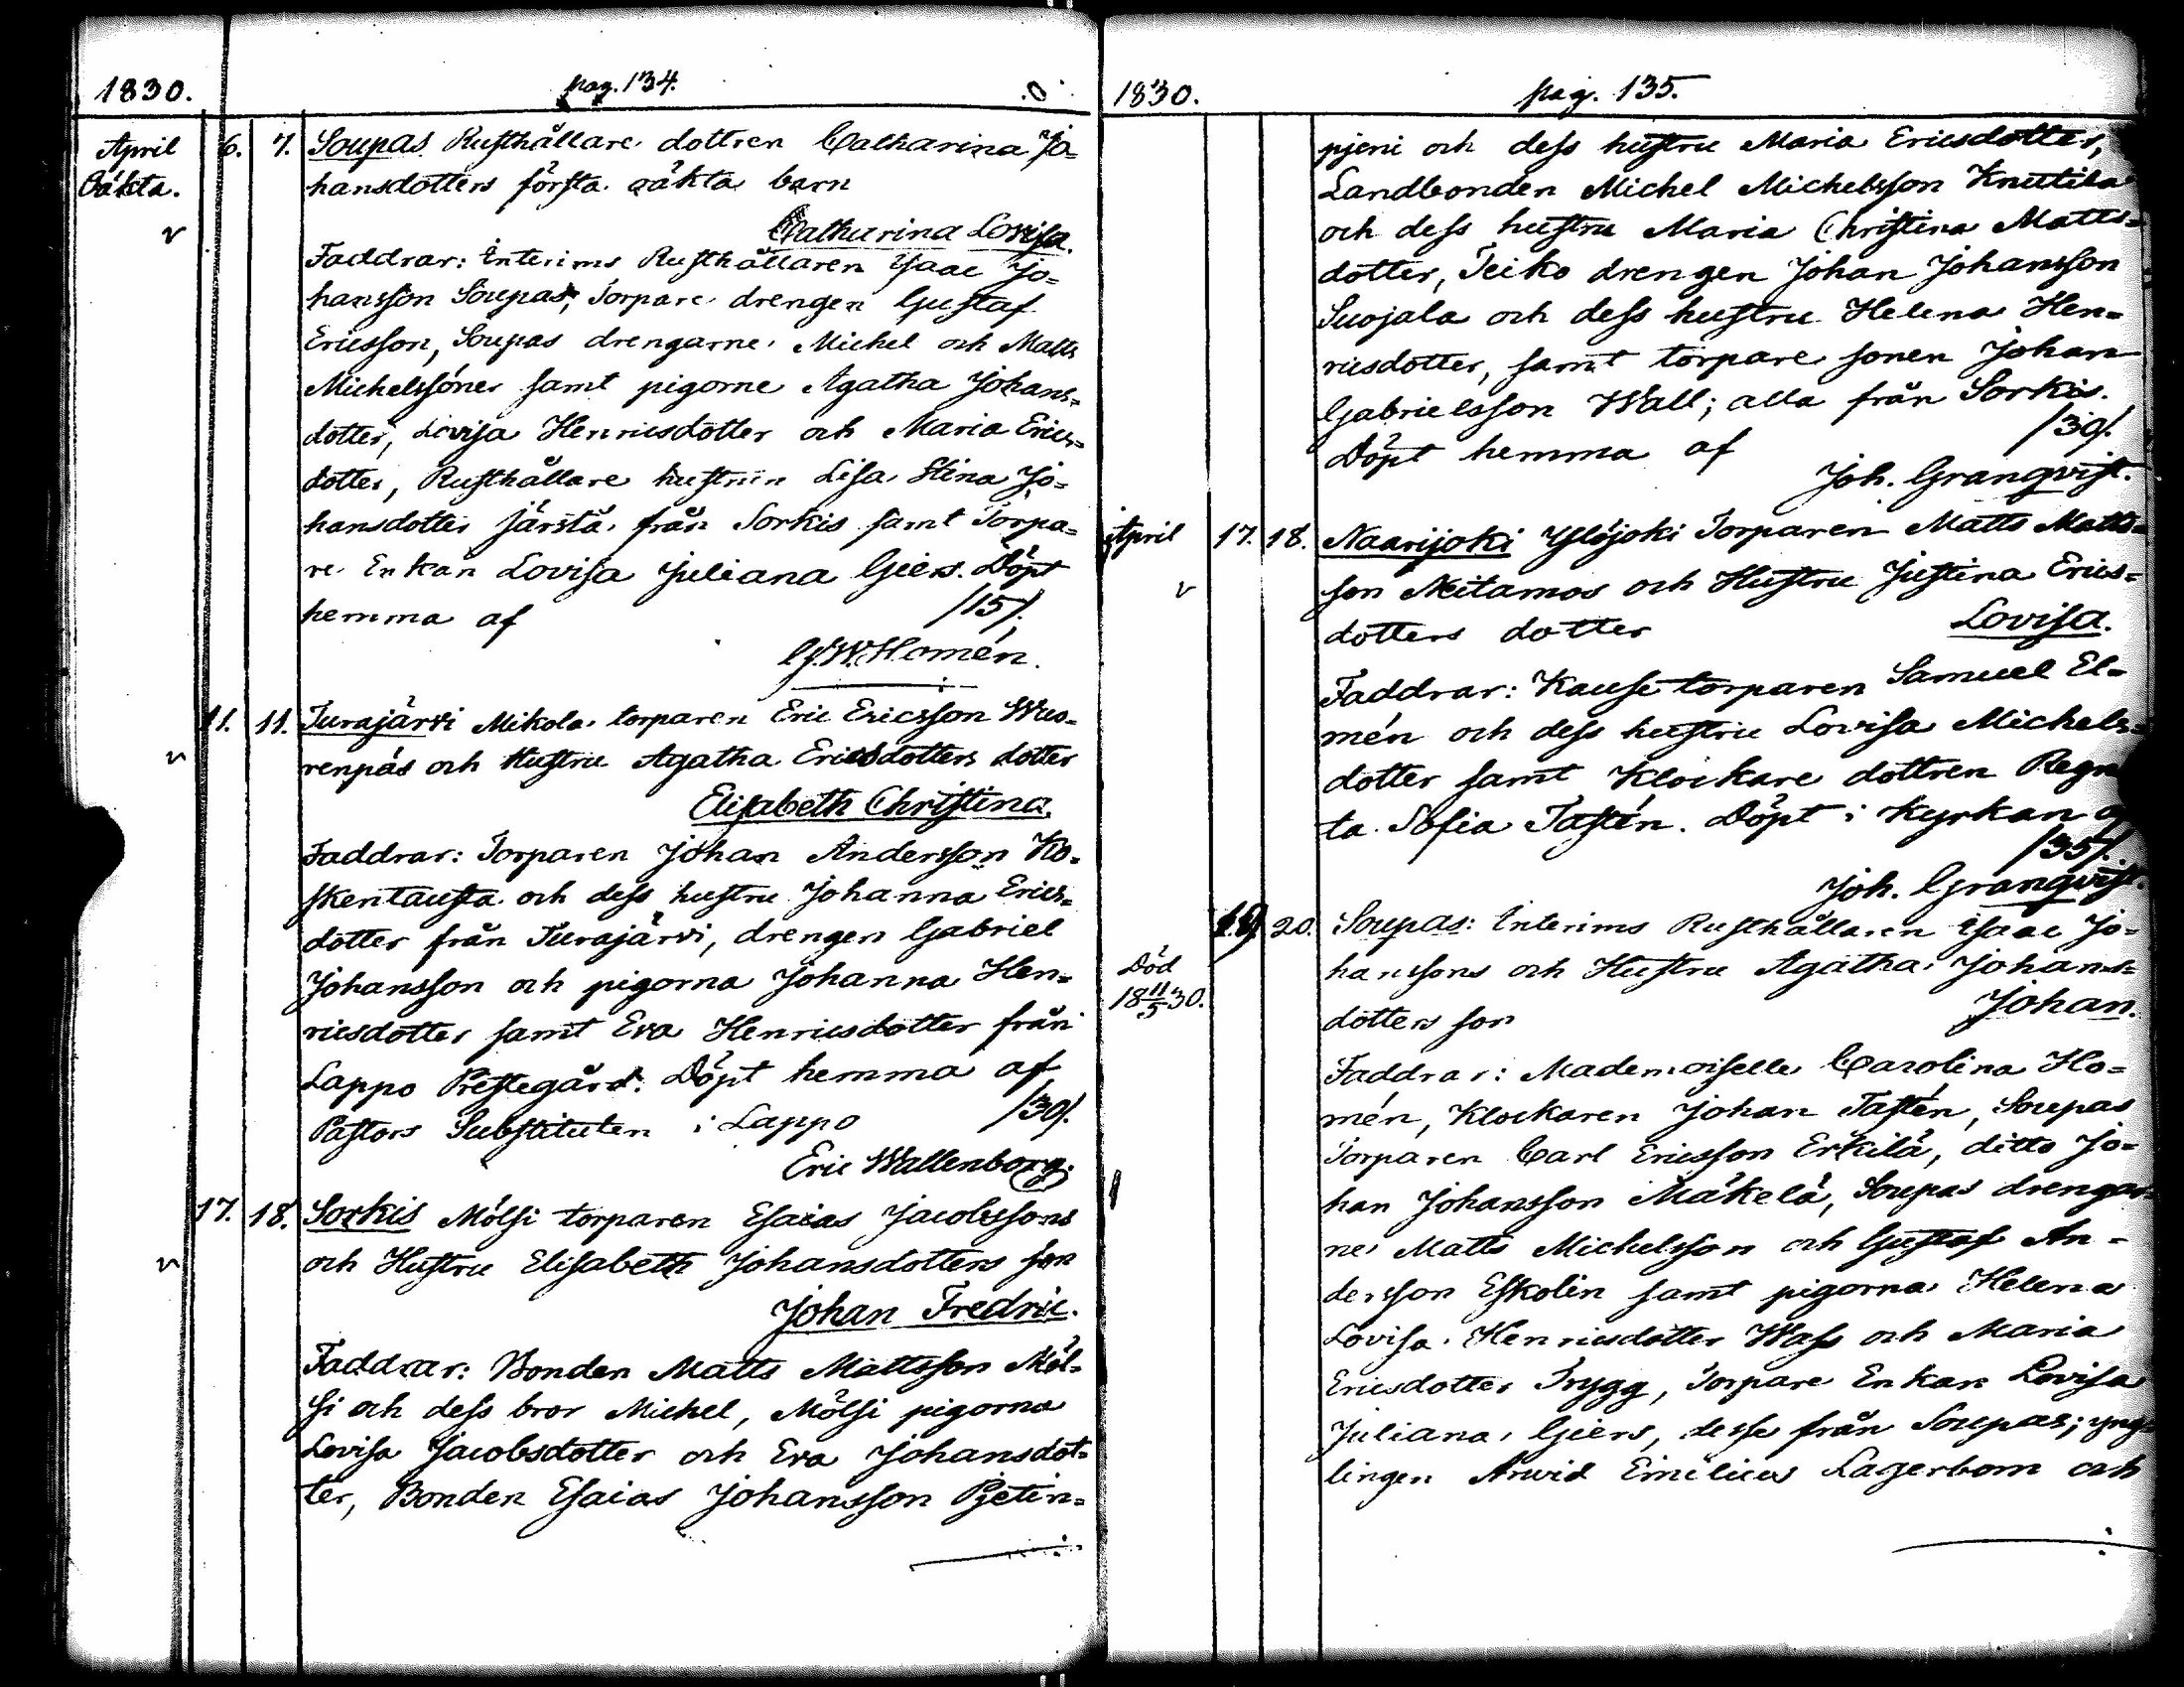 1830.
pag. 134.
April
Oäkta.
6. 7. Soupas Rusthållare dottren Catharina Jo-
hansdotters första oäkta barn
Catharina Lovisa.
Faddrar: Interims Rusthållaren Isaac Jo-
hansson Soupas, Torpare drengen Gustaf
Ericsson, Soupas drengarne Michel och Matts
Michelssöner samt pigorne Agatha Johans-
dotter, Lovisa Henricsdotter och Maria Erics-
dotter, Rusthållare hustrun Lisa Stina Jo-
hansdotter Järstä från Sorkis samt Torpa-
re Enkan Lovisa Juliana Giers. Döpt
hemma af /15/.
G.W. Homén.
11. 11. Turajärvi Mikola torparen Eric Ericsson Wuo-
renpäs och Hustru Agatha Ericsdotters dotter
Elisabeth Christina.
Faddrar: Torparen Johan Andersson Ko-
skentausta och dess hustru Johanna Erics-
dotter från Turajärvi, drengen Gabriel
Johansson och pigorna Johanna Hen-
ricsdotter samt Eva Henricsdotter från
Lappo Prestegård. Döpt hemma af
Pastors Substituten i Lappo /30/.
Eric Wallenborg.
17. 18. Sorkis Mölsi torparen Esaias Jacobssons
och Hustru Elisabeth Johansdotters son
Johan Fredric.
Faddrar: Bonden Matts Mattsson Möl-
si och dess bror Michel, Mölsi pigorna
Lovisa Jacobsdotter och Eva Johansdot-
ter, Bonden Esaias Johansson Pjetin-
1830.
pag. 135.
pjeni och dess hustru Maria Ericsdotter,
Landbonden Michel Michelsson Knuttila
och dess hustru Maria Christina Matts-
dotter, Teiko drengen Johan Johansson
Suojala och dess hustru Helena Hen-
ricsdotter, samt torpare sonen Johan
Gabrielsson Wall; alla från Sorkis.
Döpt hemma af /30/.
Joh. Granqvist.
April 17. 18. Naarijoki Ylöjoki Torparen Matts Matts-
son Neitamos och Hustru Justina Erics-
dotters dotter Lovisa.
Faddrar: Kause torparen Samuel El-
mén och dess hustru Lovisa Michels-
dotter samt Klockare dottren Regi
ta Sofia Tastén. Döpt i Kyrkan af
/35/.
Joh. Granqvist.
19. 20. Soupas: Interims Rusthållaren Isaac Jo-
Död
18 11/5 30.
hanssons och Hustru Agatha Johans-
dotters son Johan.
Faddrar: Mademoiselle Carolina Ho-
mén, Klockaren Johan Tastén, Soupas
Torparen Carl Ericsson Erkilä, ditto Jo-
han Johansson Mäkelä, Soupas drengar-
ne Matts Michelsson och Gustaf An-
dersson Eskolin samt pigorna Helena
Lovisa Henricsdotter Wass och Maria
Ericsdotter Trygg, Torpare Enkan Lovisa
Juliana Giers, desse från Soupas; yng-
lingen Arwid Emilius Lagerbom och